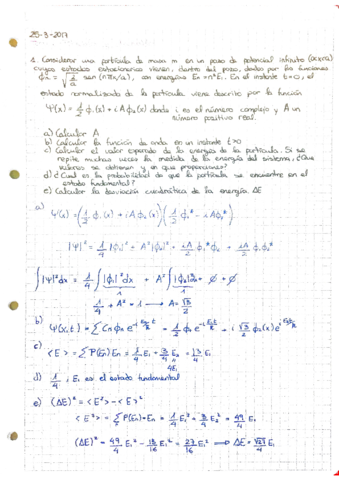 25-3-2017
1. Considerar una partícula de masa m en un pozo de potencial infinito (0<x<a)
cuyos estados estacionarios vienen, dentro del pozo, dados por las funciones
ϕn = √(2/a) sen (nπx/a), con energías En=n²E₁. En el instante t=0, el
estado normalizado de la partícula viene descrito por la función
Ψ(x) = 1/2 ϕ₁(x) + i A ϕ₂(x) donde i es el número complejo y A un
número positivo real.
a) Calcular A
b) Calcular la función de onda en un instante t>0
c) Calcular el valor esperado de la energía de la partícula. Si se
repite muchas veces la medida de la energía del sistema, ¿Que
valores se obtienen y en que proporciones?
d) ¿Cual es la probabilidad de que la partícula se encuentre en el
estado fundamental?
e) Calcular la desviación cuadrática de la energía. ΔE
a) Ψ(x) = (1/2 ϕ₁(x) + i A ϕ₂(x)) (1/2 ϕ₁* - i A ϕ₂*)
|Ψ|² = 1/4 |ϕ₁|² + A² |ϕ₂|² + iA/2 ϕ₁*ϕ₂ + iA/2 ϕ₁ϕ₂*
∫|Ψ|² dx = 1/4 ∫|ϕ₁|² dx + A² ∫|ϕ₂|² dx + ∅ + ∅
1 1
1/4 + A² = 1 → A = √3/2
b) Ψ(x,t) = Σ Cn ϕn e^(-i En t/ħ) = 1/2 ϕ₁ e^(-i E₁t/ħ) + i √3/2 ϕ₂(x) e^(-i E₂t/ħ)
c) <E> = Σ P(En) En = 1/4 E₁ + 3/4 E₂ = 13/4 E₁
4E₁
d) 1/4 ; E₁ es el estado fundamental
e) (ΔE)² = <E²> - <E>²
<E²> = Σ P(En)·En = 1/4 E₁² + 3/4 E₂² = 49/4 E₁²
(ΔE)² = 49/4 E₁² - 13²/16 E₁² = 27/16 E₁² ⟹ ΔE = √27/4 E₁